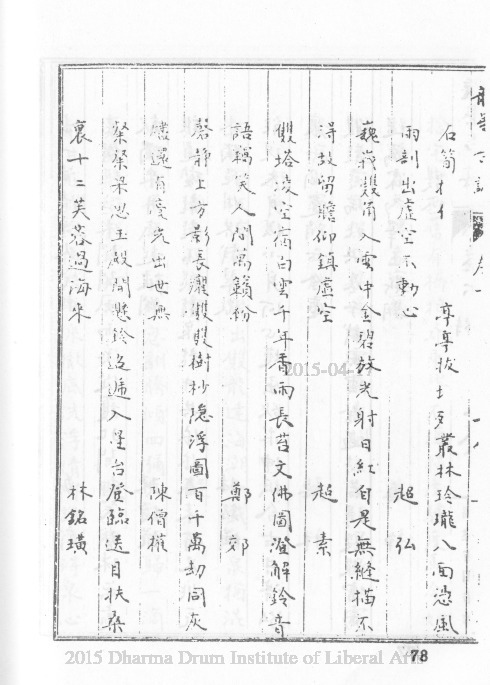 石筍 亭亭拔土 叢林玲瓏八面憑風
雨剖出虛空不動心 超弘
巍峩雙角入雲中金碧放光射日紅自是無縫描不
得故留瞻仰鎮虛空 超素
雙塔凌空宿白雲千年香雨長苔文佛圖澄解鈴音
語竊笑人間萬籟紛 鄭郊
磬静上方影長濯濯雙雙樹杪隱浮圖百千萬劫同灰
燼還有废光出世無 陳僧權
粲粲梁 玉殿開懸鈴迢遞入星台登臨送目扶桑
裏十二芙蓉過海來 林銘璜
2015-04-
78
2015 Dharma Drum Institute of Liberal Arts